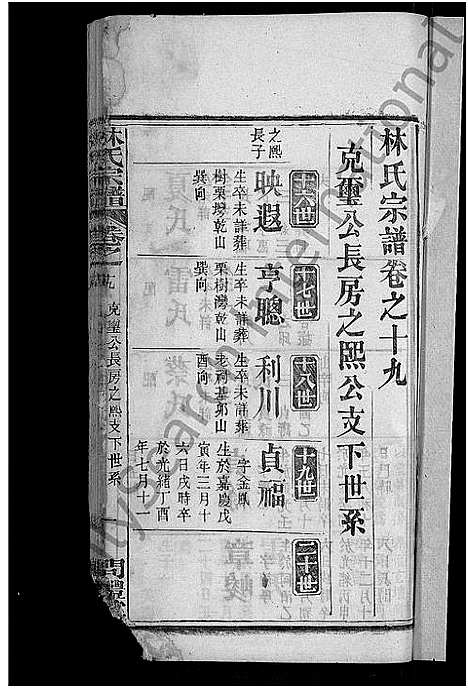 林氏宗譜卷之十九
克璽公長房之熙公支下世系
十六世
十七世
十八世
十九世
二十世
之熙
長子
映遐
生卒未詳葬
樹栗塆乾山
巽向
亨聰
生卒未詳葬
栗樹灣乾山
巽向
利川
生卒未詳葬
老祠基卯山
酉向
貞福
字金鳳
生於嘉慶戊
寅年三月十
六日戌時卒
於光緒丁酉
年七月十一
林氏宗譜
卷之
克璽公長房之熙支下世系